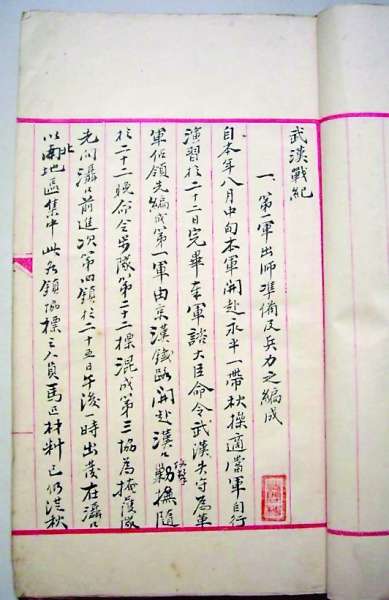 武漢戰紀
一、第一軍出師準備及兵力之編成
自本年八月中旬本軍開赴永平一帶秋操適當軍自行
演習於二十二日完畢奉軍諮大臣命令武漢失守為革
軍佔領先編成第一軍由京漢鐵路開赴漢口勦撫隨
於二十二晚命令步隊第二十二標混成第三協為掩護隊
先向灄口前進次第四鎮於二十五日午後一時出發在灄口
以北南地區集中此各鎮協標之人員馬匹材料已仍從秋